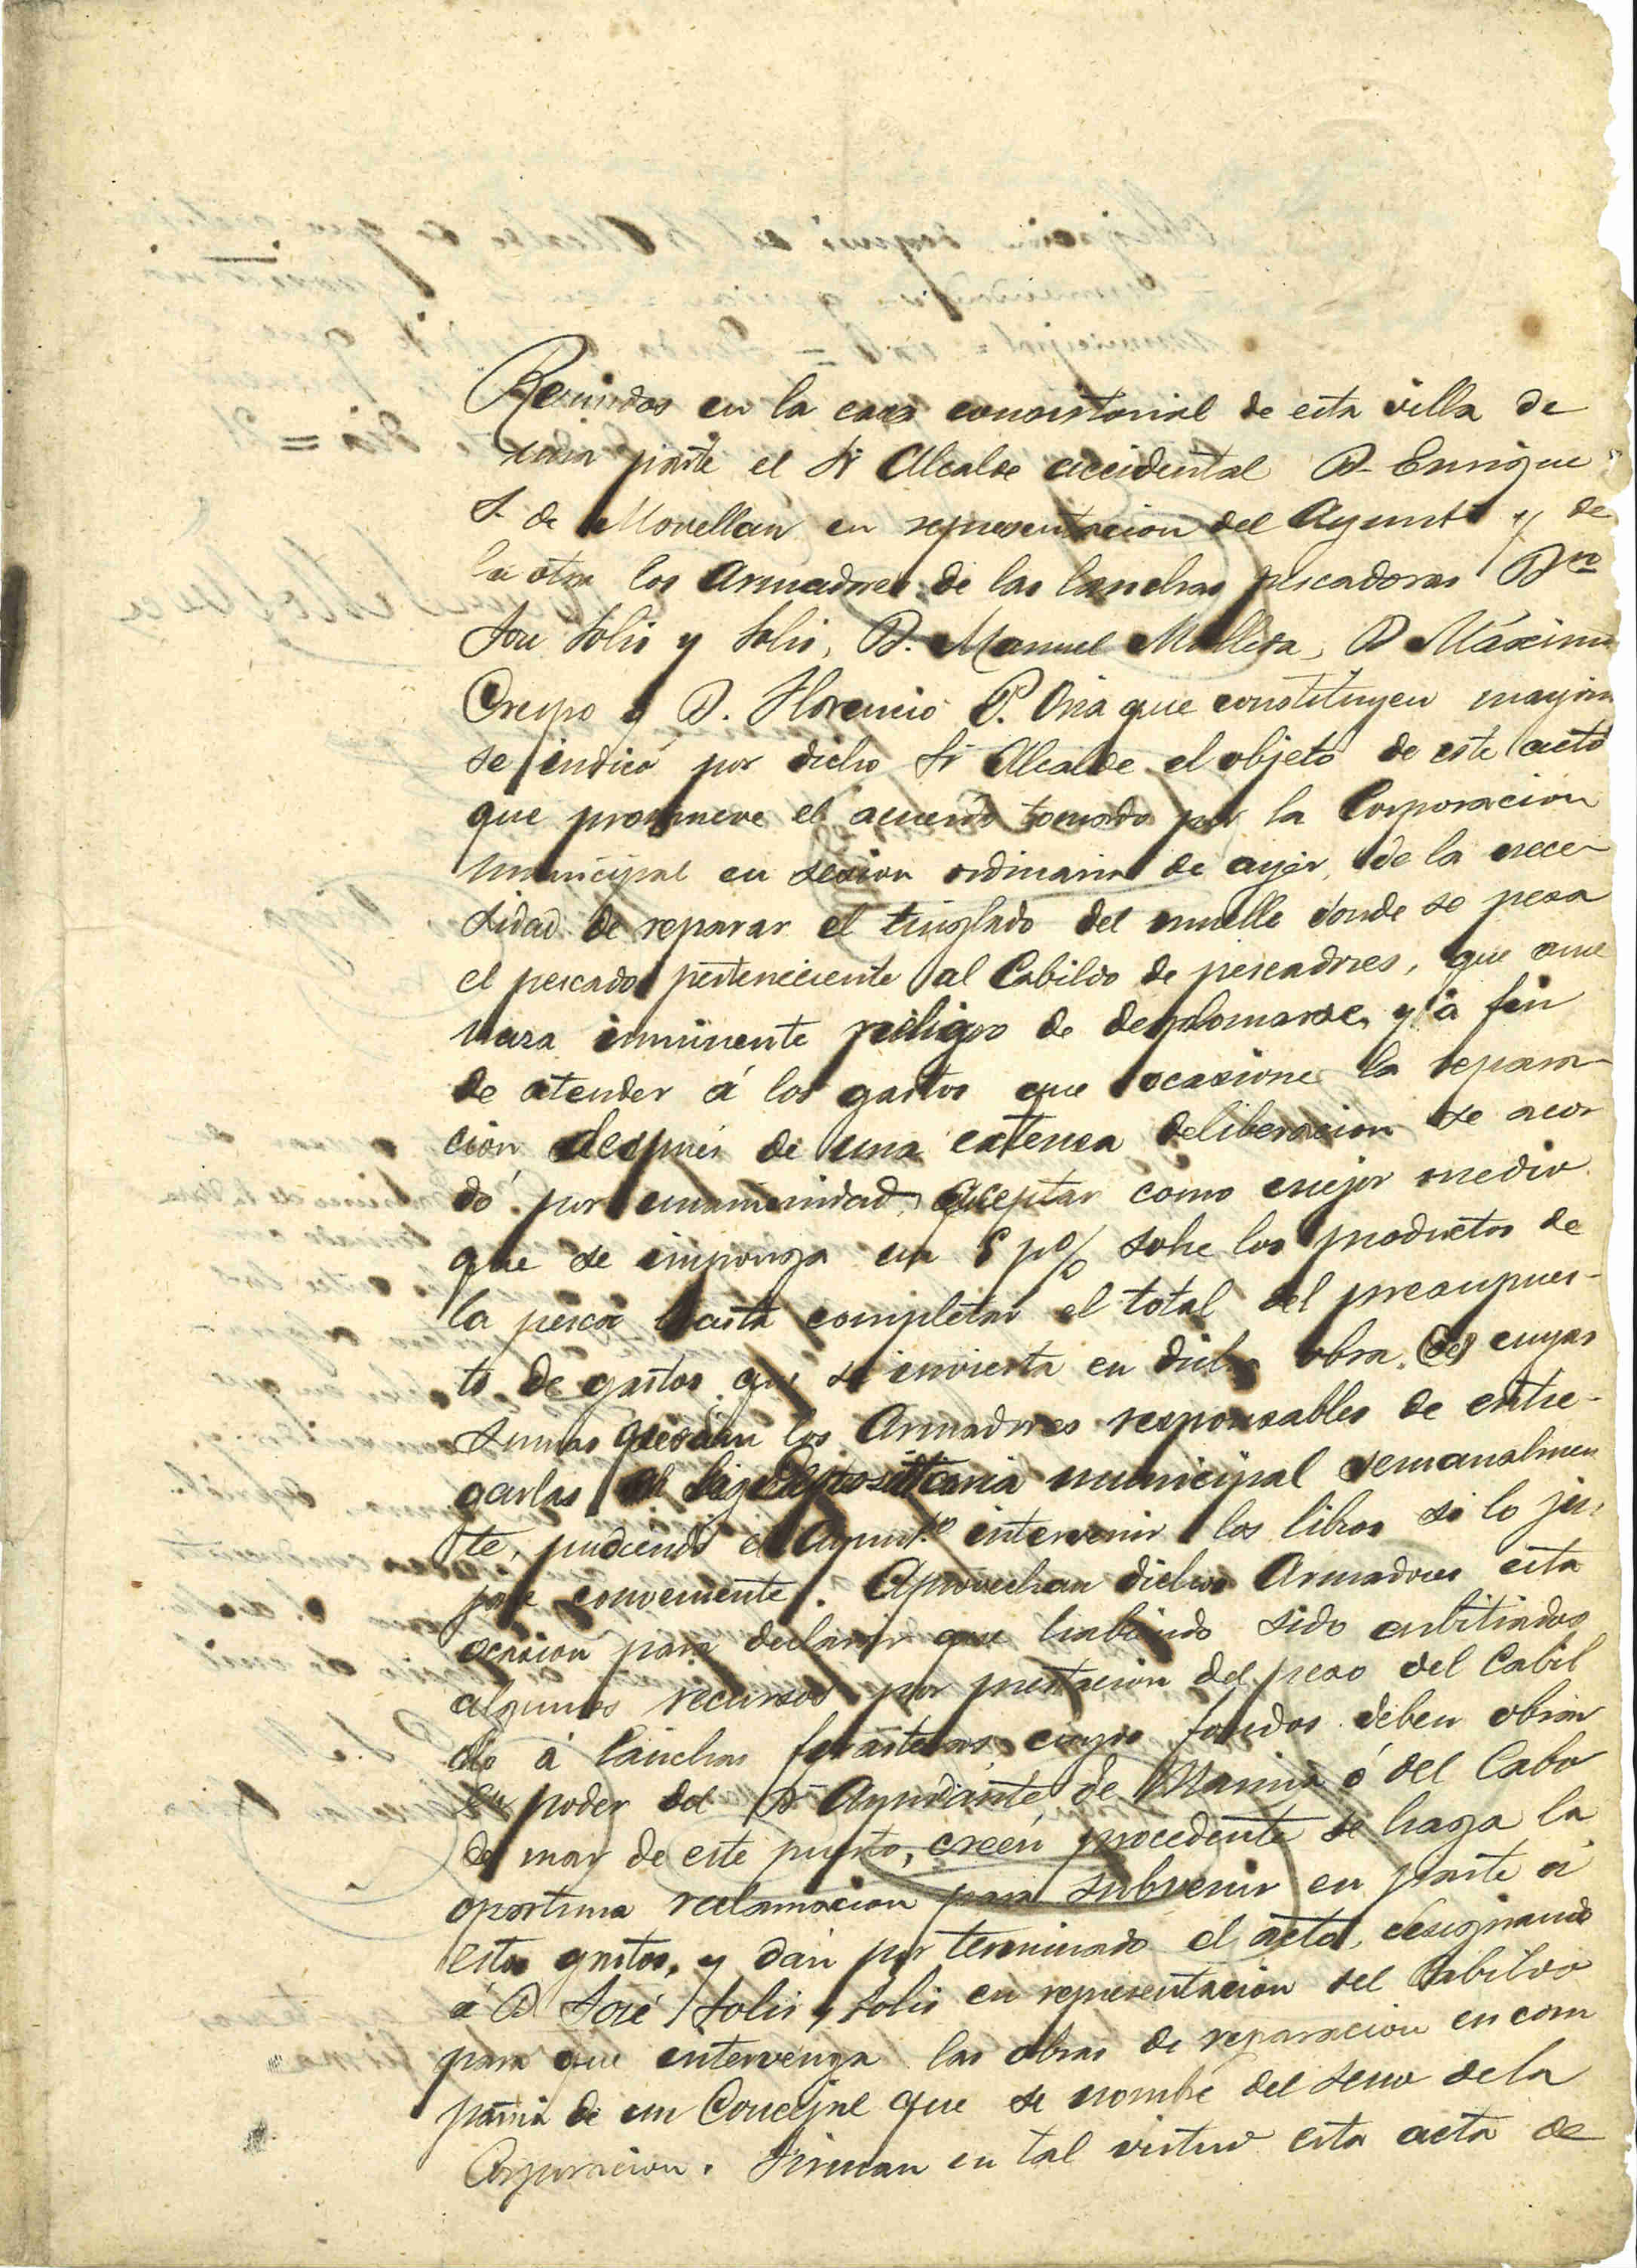 Reunidos en la casa consistorial de esta villa de
una parte el Sr Alcalde accidental D. Enrique
S. de Movellan en representacion del Ayunto y de
la otra los Armadores de las lanchas pescadoras Dn
José Solis y Solis, D. Manuel Molleda, D Máximo
Crespo y D. Florencio P. Oria que constituyen mayoria
se indicó por dicho Sr Alcalde el objeto de este acto
que promueve el acuerdo tomado por la Corporacion
municipal en sesion ordinaria de ayer, de la nece-
sidad de reparar el tinglado del muelle donde se pesa
el pescado perteneciente al Cabildo de pescadores, que ame
naza inminente peligro de desplomarse, y á fin
de atender á los gastos que ocasione la repara-
ción después de una extensa deliberacion se acor
dó por unanimidad, aceptar como mejor medio
que se imponga un p% sobre los productos de
la pesca hasta completar el total del presupues-
to de gastos que se invierta en dicha obra. cuyas
sumas quedan los Armadores responsables de entre-
garlas Depositaria municipal semanalmen
te, pudiendo el Ayunto intervenir los libros si lo juz
gase conveniente. Aprovechan dichos Armadores esta
ocasion para declarar que habiendo sido arbitrados
algunos recursos por prestacion del peso del Cabil
do á lanchas forasteras cuyos fondos deben obrar
en poder del Sr Ayudante de Marina ó del Cabo
de mar de este puerto, creén procedente se haga la
oportuna reclamacion para subvenir en parte á
estos gastos, y dan por terminado el acto, designando
á D José Solis y Solis en representacion del Cabildo
para que intervenga las obras de reparacion en com
pañia de un Concejal que se nombre del seno de la
Corporacion. Firman en tal virtud esta acta de